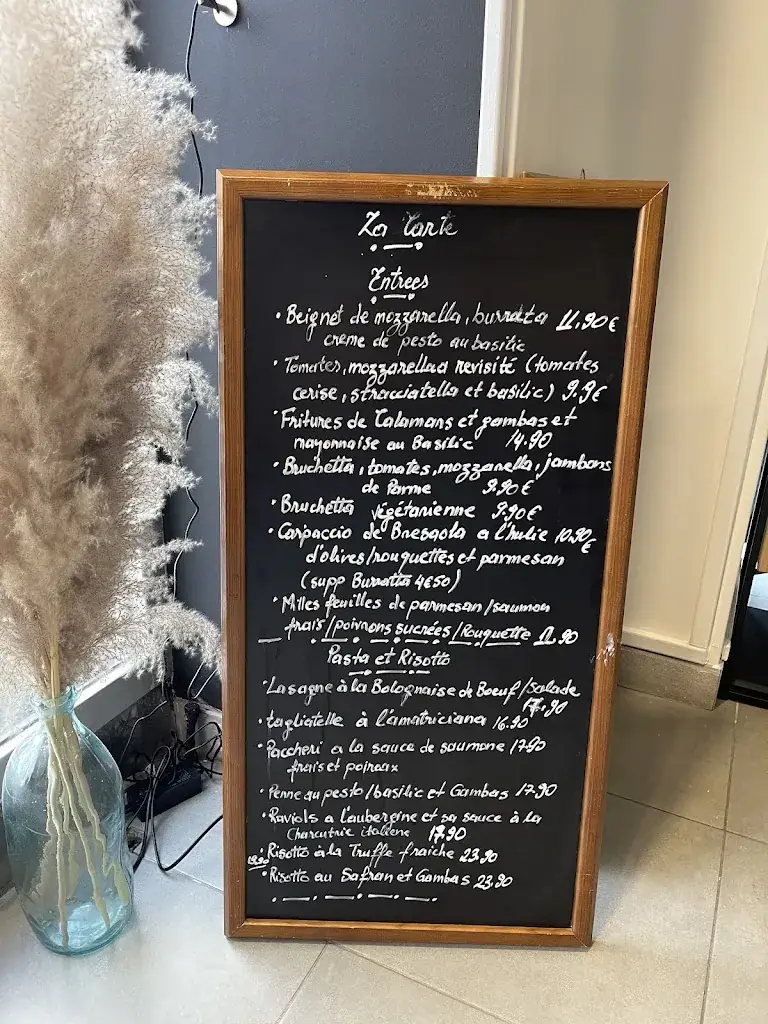 La Carte
Entrees
• Beignet de mozzarella, burrata 11,90€
creme de pesto au basilic
• Tomates, mozzarella revisité (tomates
cerise, stracciatella et basilic) 9.9€
• Fritures de Calamars et gambas et
mayonnaise au Basilic 14.90
• Bruchetta, tomates, mozzarella, jambons
de Parme 9.90€
• Bruchetta végétarienne 9.90€
• Carpaccio de Bresaola a l'huile 10.90€
d'olives/rouquettes et parmesan
(supp Burrata 4€50)
• Milles feuilles de parmesan/saumon
frais/poivrons sucrées/Rouquette 11.90
Pasta et Risotto
• Lasagne à la Bolognaise de Boeuf/salade
17.90
• tagliatelle à l'amatriciana 16.90
• Paccheri a la sauce de saumone 17.90
frais et poiraux
• Penne au pesto/basilic et Gambas 17.90
• Raviols a l'aubergine et sa sauce à la
Charcutrie italiene 17.90
• Risotto à la Truffe fraiche 23,90
19.90
• Risotto au Safran et Gambas 23,90